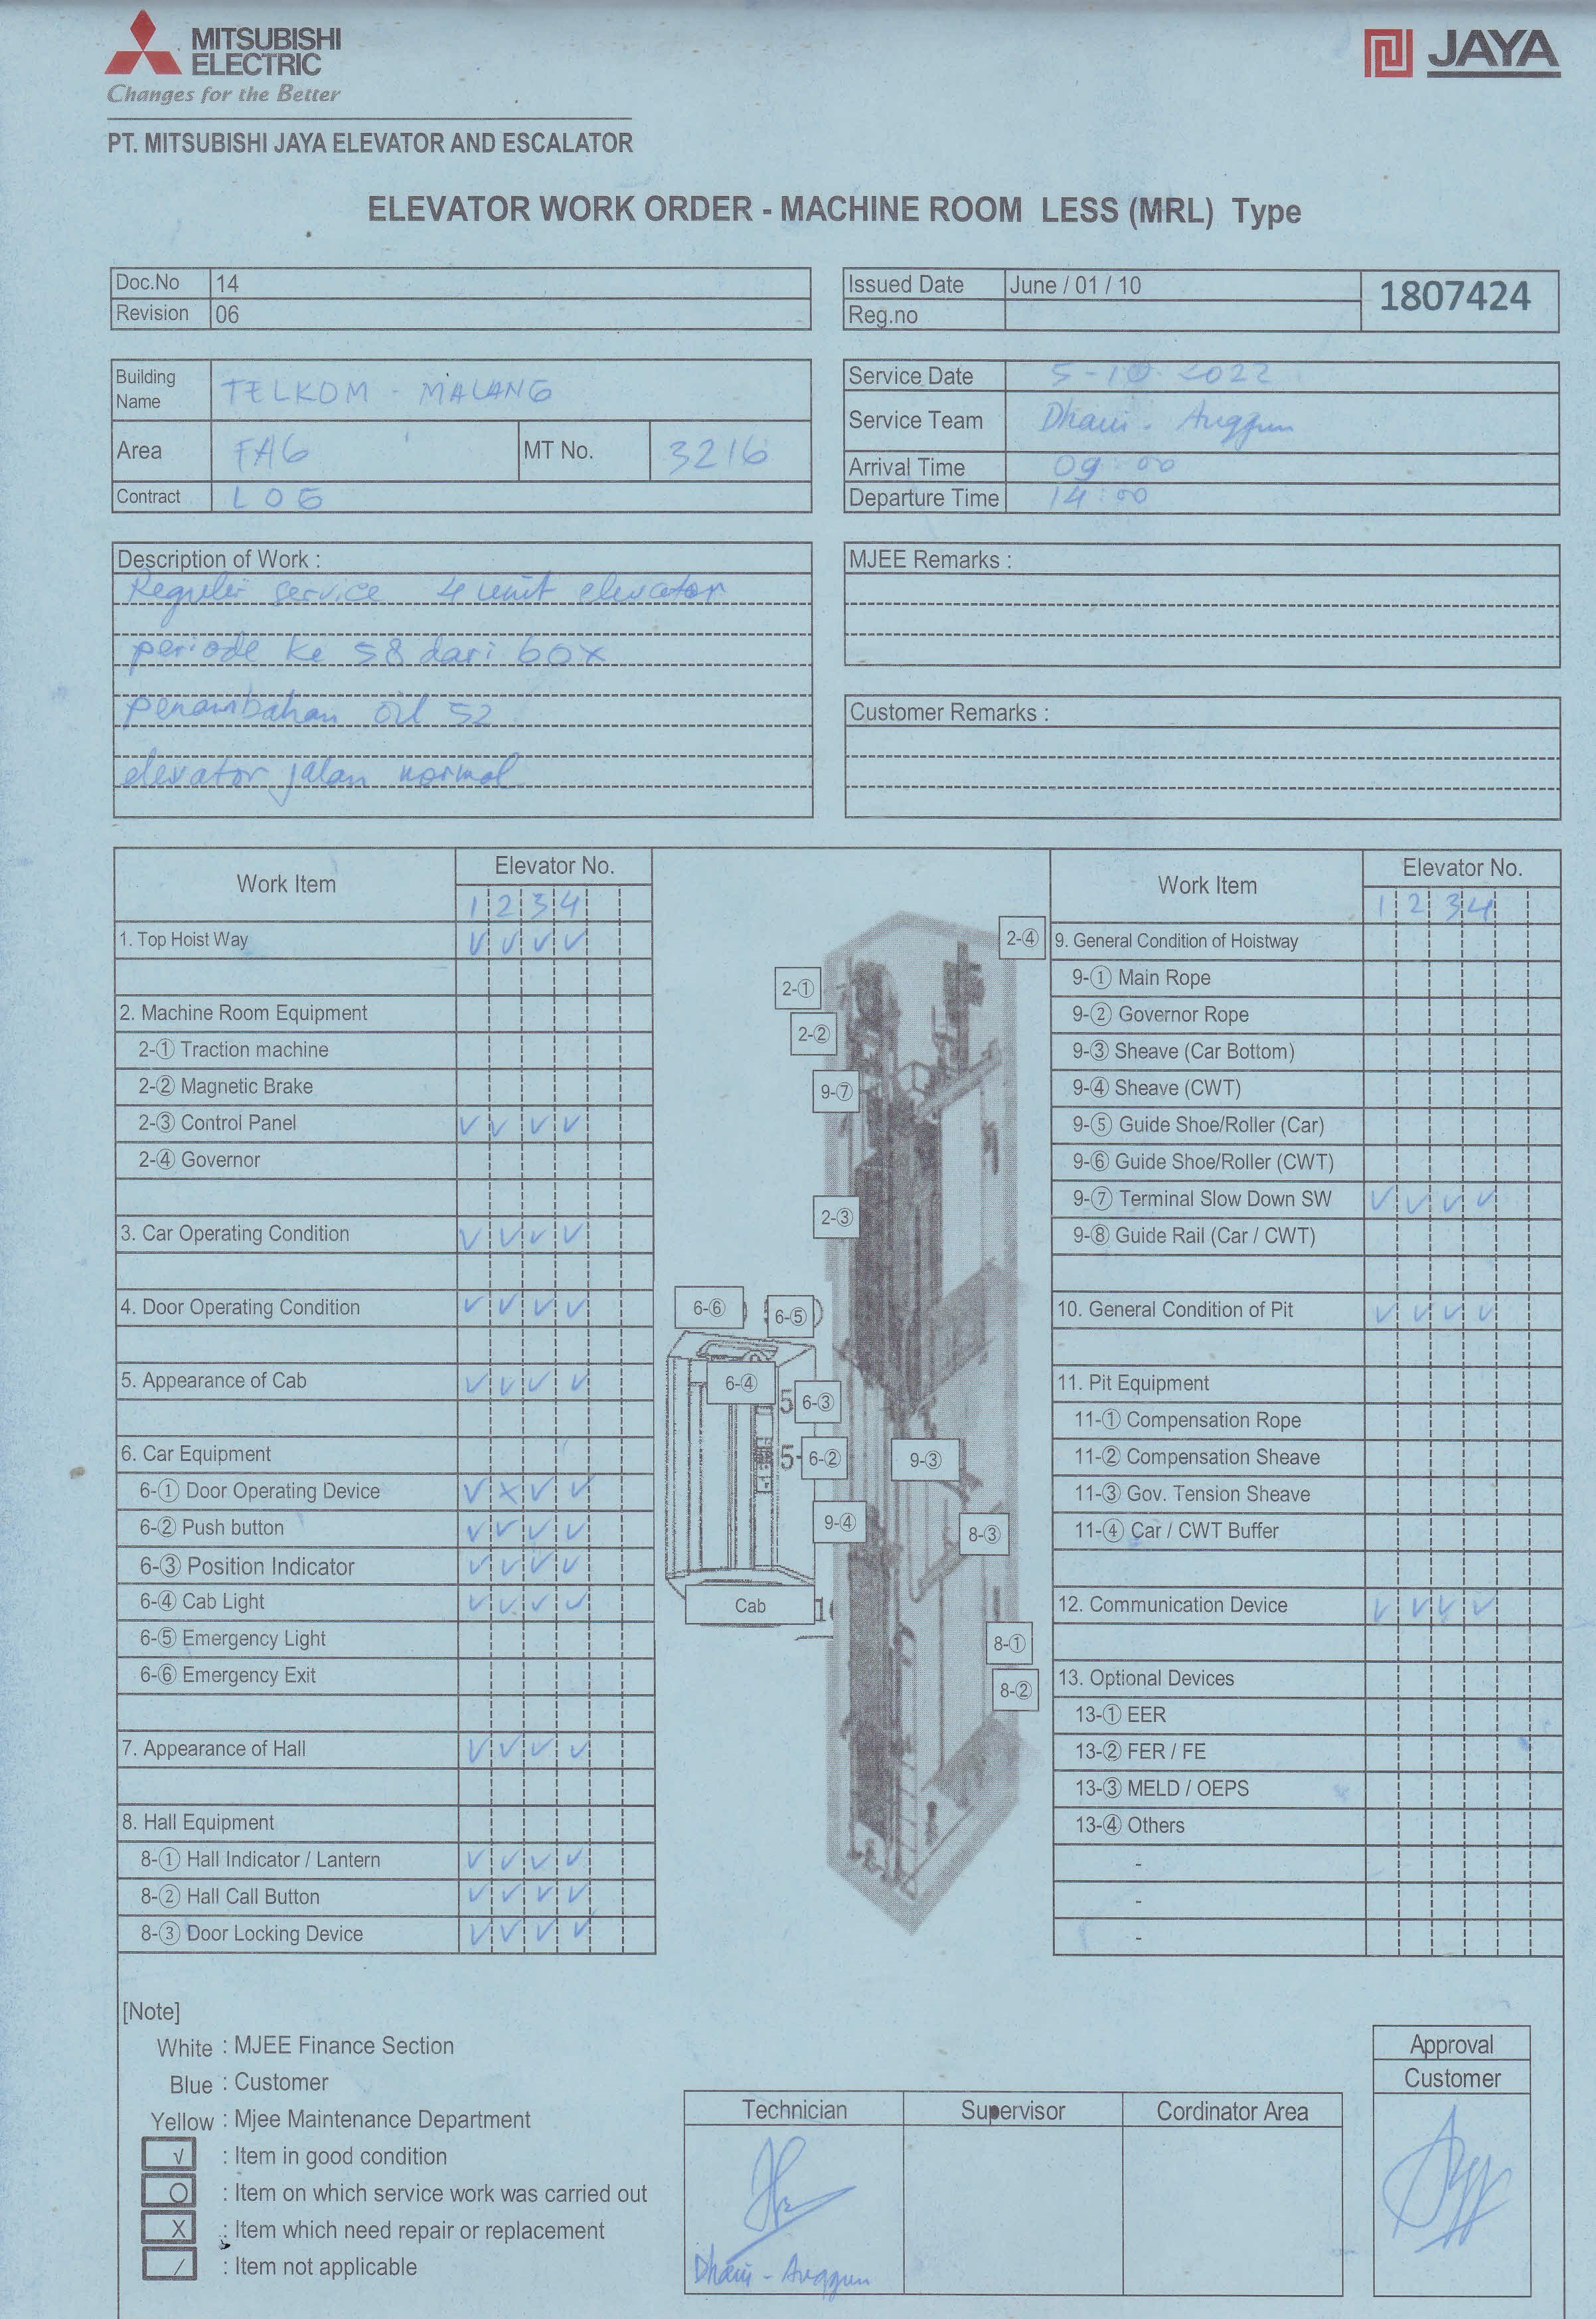 MITSUBISHI
ELECTRIC
Changes for the Better
JAYA
PT. MITSUBISHI JAYA ELEVATOR AND ESCALATOR
ELEVATOR WORK ORDER - MACHINE ROOM LESS (MRL) Type
Doc.No 14
Revision 06
Issued Date June / 01 / 10
Reg.no
1807424
Building Name TELKOM - MALANG
Area FA6 MT No. 3216
Contract LOG
Service Date 5-10 2022
Service Team Dhani - Anggun
Arrival Time 09:00
Departure Time 14:00
Description of Work :
Reguler service 4 unit elevator
periode ke 58 dari 60x
penambahan oil 52
elevator jalan normal
MJEE Remarks :
Customer Remarks :
Work Item Elevator No.
1 2 3 4
1. Top Hoist Way V V V V
2. Machine Room Equipment
2-① Traction machine
2-② Magnetic Brake
2-③ Control Panel V V V V
2-④ Governor
3. Car Operating Condition V V V V
4. Door Operating Condition V V V V
5. Appearance of Cab V V V V
6. Car Equipment
6-① Door Operating Device V X V V
6-② Push button V V V V
6-③ Position Indicator V V V V
6-④ Cab Light V V V V
6-⑤ Emergency Light
6-⑥ Emergency Exit
7. Appearance of Hall V V V V
8. Hall Equipment
8-① Hall Indicator / Lantern V V V V
8-② Hall Call Button V V V V
8-③ Door Locking Device V V V V
2-④
2-①
2-②
9-⑦
2-③
6-⑥
6-⑤
6-④
5 6-③
5- 6-②
9-③
9-④
8-③
Cab
8-①
8-②
Work Item Elevator No.
1 2 3 4
9. General Condition of Hoistway
9-① Main Rope
9-② Governor Rope
9-③ Sheave (Car Bottom)
9-④ Sheave (CWT)
9-⑤ Guide Shoe/Roller (Car)
9-⑥ Guide Shoe/Roller (CWT)
9-⑦ Terminal Slow Down SW V V V V
9-⑧ Guide Rail (Car / CWT)
10. General Condition of Pit V V V V
11. Pit Equipment
11-① Compensation Rope
11-② Compensation Sheave
11-③ Gov. Tension Sheave
11-④ Car / CWT Buffer
12. Communication Device V V V V
13. Optional Devices
13-① EER
13-② FER / FE
13-③ MELD / OEPS
13-④ Others
-
-
-
[Note]
White : MJEE Finance Section
Blue : Customer
Yellow : Mjee Maintenance Department
√ : Item in good condition
O : Item on which service work was carried out
X : Item which need repair or replacement
/ : Item not applicable
Technician Supervisor Cordinator Area
Dhani - Anggun
Approval
Customer